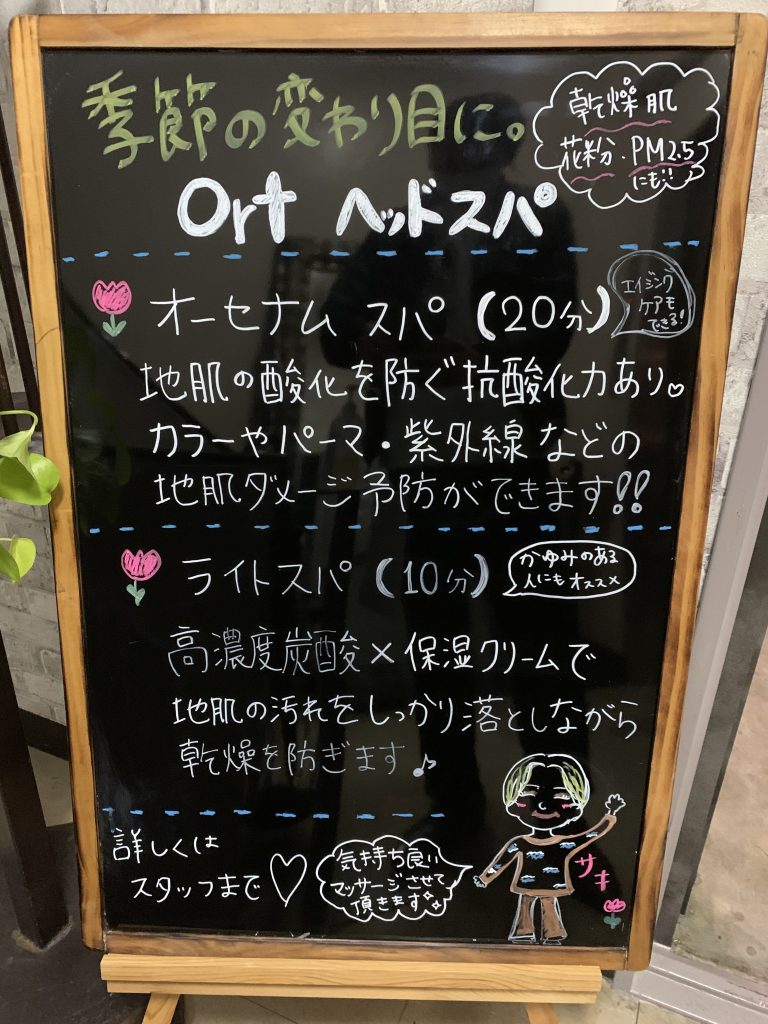 季節の変わり目に。
乾燥肌
花粉・PM2.5
にも!!
Ort ヘッドスパ
オーセナム スパ (20分)
エイジング
ケアも
できる!
地肌の酸化を防ぐ抗酸化力あり♡
カラーやパーマ・紫外線などの
地肌ダメージ予防ができます!!
ライトスパ (10分)
かゆみのある
人にもオススメ
高濃度炭酸×保湿クリームで
地肌の汚れをしっかり落としながら
乾燥を防ぎます♪
詳しくは
スタッフまで♡
気持ち良い
マッサージさせて
頂きます
サキ